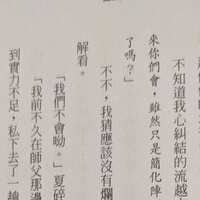 不知道我心糾結的流越
來你們會,雖然只是簡化陣
了嗎?」
不不,我猜應該沒有爛
解看。
「我們不會呦。」夏碎
「我前不久在師父那邊
到實力不足,私下去了一趟